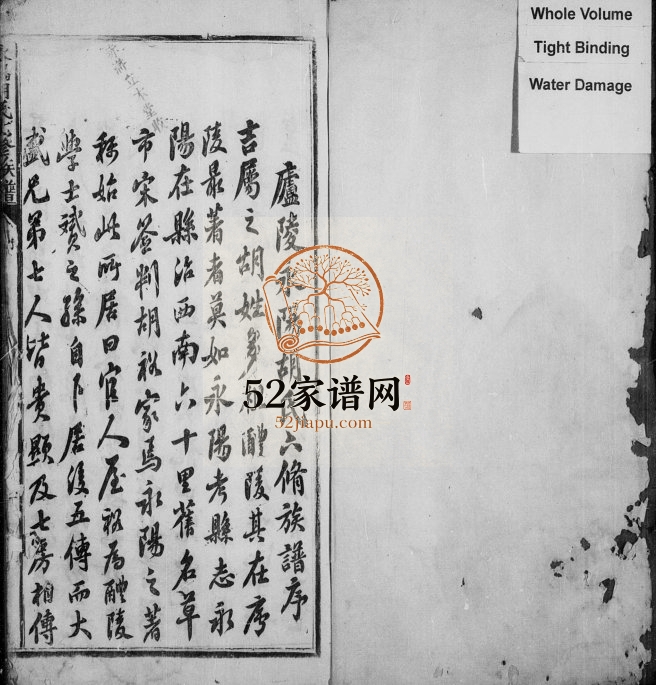 Whole Volume
Tight Binding
Water Damage
廬陵永陽胡氏六脩族譜序
吉屬之胡姓 醴陵其在廬
陵最著者莫如永陽考縣志永
陽在縣治西南六十里舊名草
市宋簽判胡 家焉永陽之著
稱始此所居曰官人屋 為醴陵
學士 之孫自卜居後五傳而大
盛兄弟七人皆貴顯及七房相傳
族譜
52家谱网
52jiapu.com